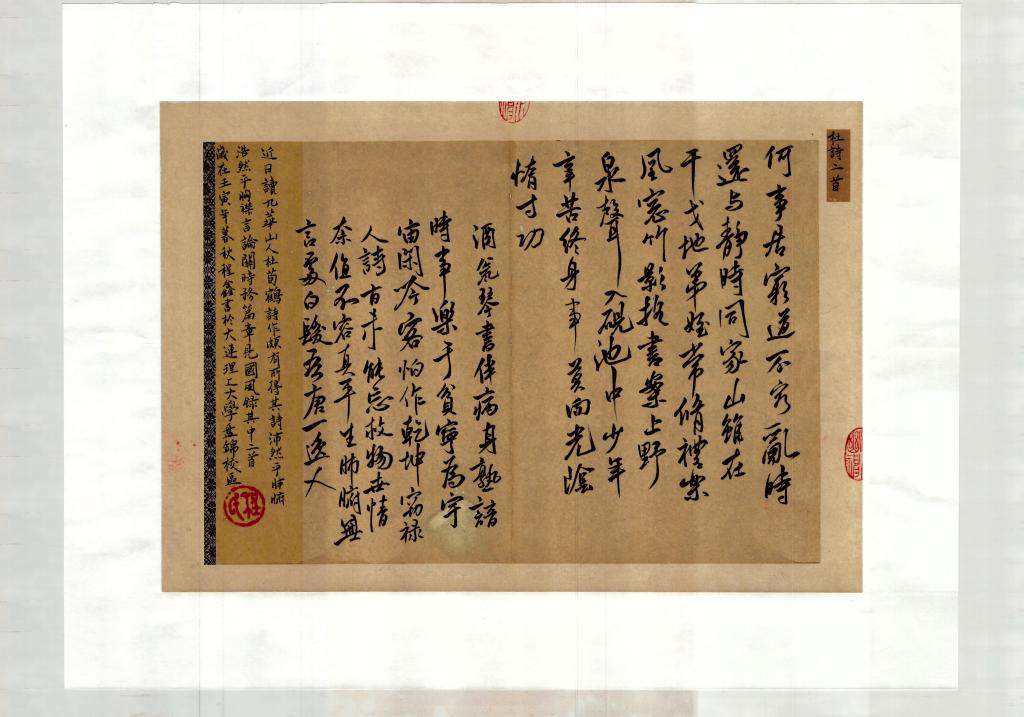 杜詩二首
何事居窮道不窮亂時
還与靜時同家山雖在
干戈地弟姪常脩禮樂
風窓竹影搖書案上野
泉聲入硯池中少年
辛苦終身事莫向光陰
惰寸功
酒瓮琴書伴病身熟諳
時事樂于貧寧為宇
宙閑吟客怕作乾坤竊祿
人詩旨未能忘救物世情
奈值不容真平生肺腑無
言處白髮吾唐一逸人
近日讀九華山人杜荀鶴詩作頗有所得其詩沛然乎肺腑
浩然乎胸襟言論關時務篇章見國風録其中二首
歲在壬寅年暮秋程鑫書於大連理工大學盤錦校區
程氏